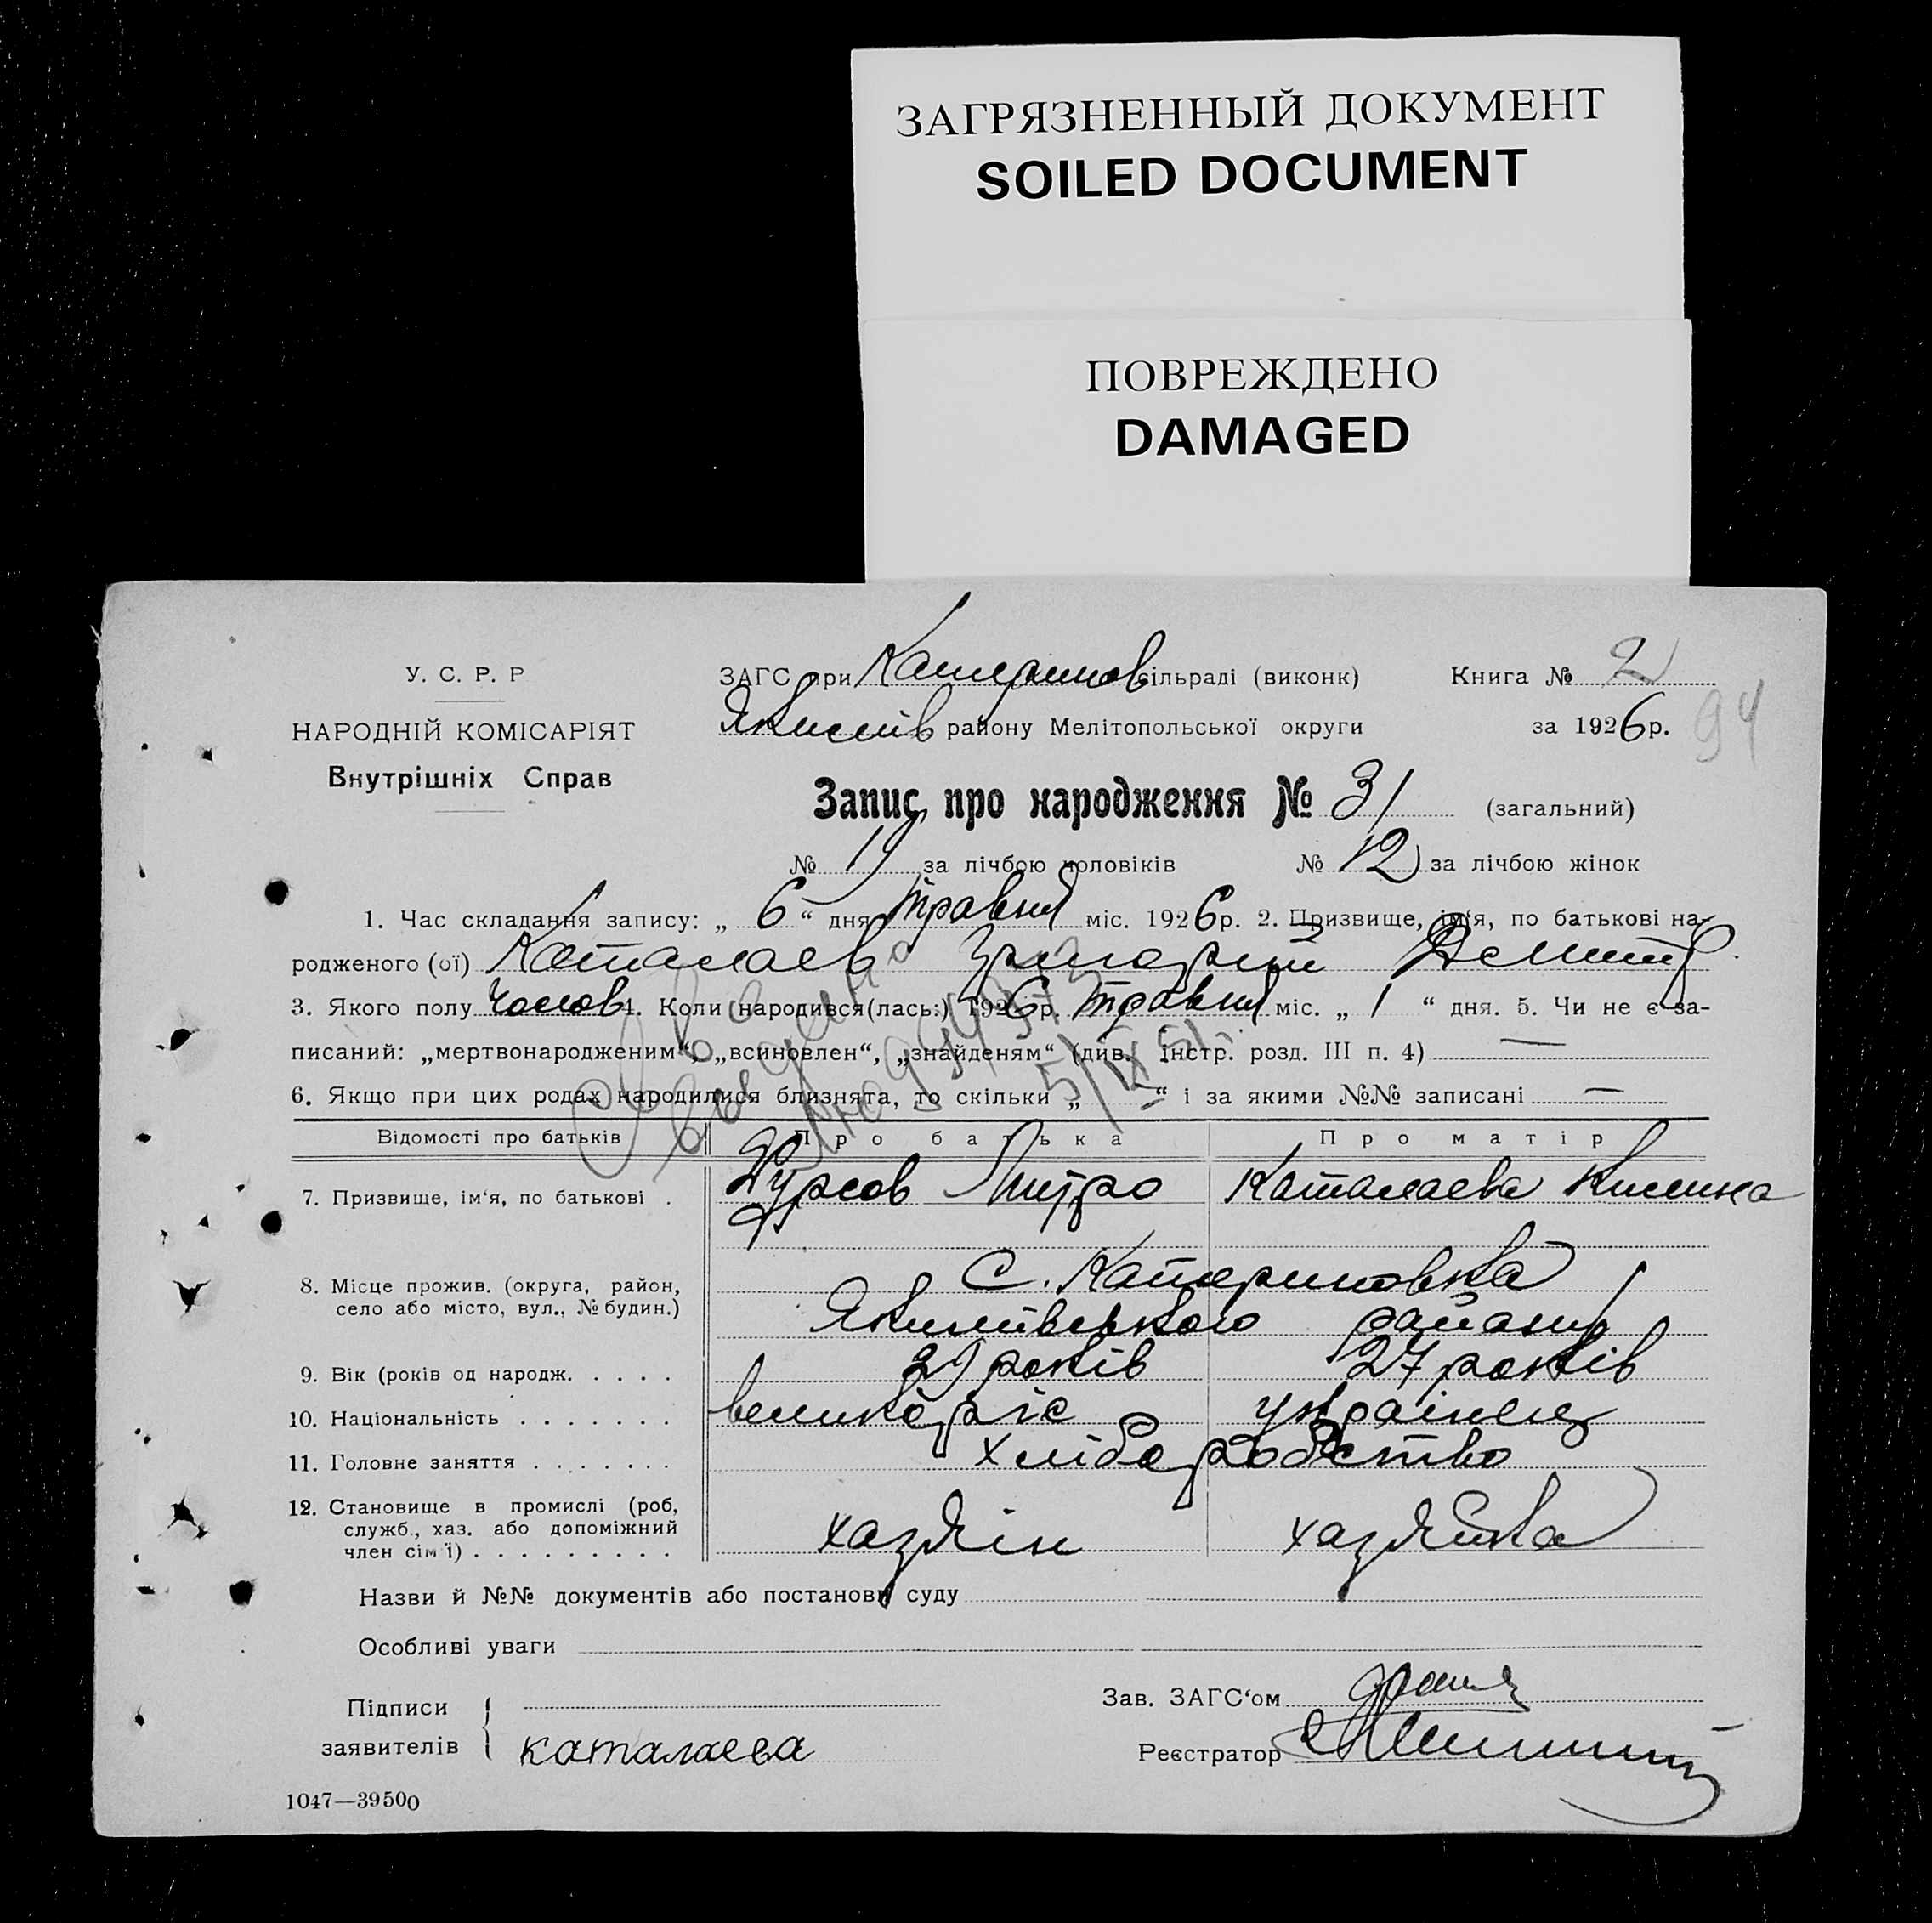 ЗАГРЯЗНЕННЫЙ ДОКУМЕНТ
SOILED DOCUMENT
ПОВРЕЖДЕНО
DAMAGED
У. С. Р. Р
НАРОДНІЙ КОМІСАРІЯТ
Внутрішніх Справ
ЗАГС при Катеринов сільраді (виконк)
Якимів району Мелітопольської округи
Книга № 2
за 1926 р.
94
Запис про народження № 31 (загальний)
№ 19 за лічбою чоловіків № 12 за лічбою жінок
1. Час складання запису: „ 6 “ дня травня міс. 1926 р. 2. Призвище, ім‘я, по батькові на-
родженого (ої) Каталаєв Григорий Дємитр.
3. Якого полу чолов 4. Коли народився(лась:) 1926 р. травня міс. „ 1 “ дня. 5. Чи не є за-
писаний: „мертвонародженим“, „всиновлен“, „знайденям“ (див. інстр. розд. III п. 4) —
6. Якщо при цих родах народилися близнята, то скільки „ — “ і за якими №№ записані —
Відомості про батьків Про батька Про матір
7. Призвище, ім‘я, по батькові . Митро Каталаева
8. Місце прожив. (округа, район,
село або місто, вул., № будин.)
С. Катериновка
Якимівського району
9. Вік (років од народж. . . . . років 27 років
10. Національність . . . . . . . великоріс українец
11. Головне заняття . . . . . . . хліборобство
12. Становище в промислі (роб,
служб., хаз. або допоміжний
член сім‘ї) . . . . . . . . . хазяїн хазяйка
Назви й №№ документів або постанови суду
Особливі уваги
Підписи
заявителів
каталаева
Зав. ЗАГС‘ом
Реєстратор
1047—39500